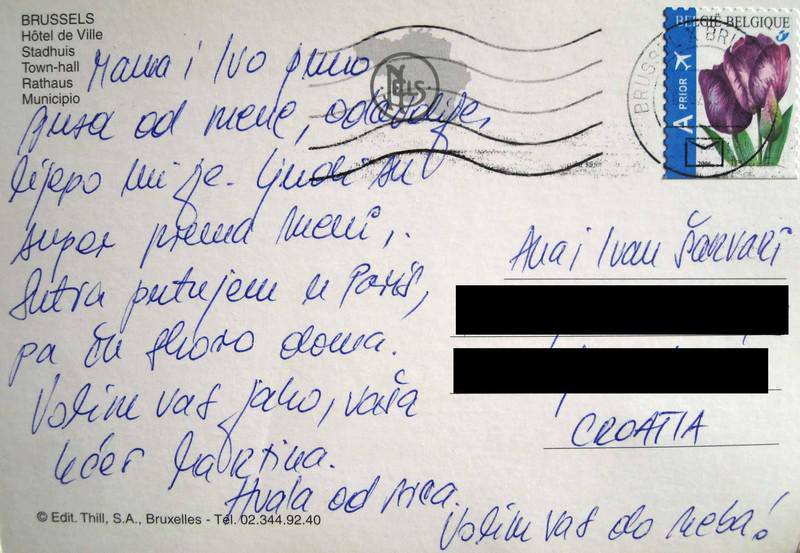 BRUSSELS
Hôtel de Ville
Stadhuis
Town-hall
Rathaus
Municipio
Mama i Ivo puno
pusa od mene,
lijepo mi je. Ljudi su
super prema meni,.
Sutra putujem u Pariš,
pa ću skoro doma.
Volim vas jako, vaša
kćer Martina.
Hvala od srca.
Volim vas do neba!
© Edit. Thill, S.A., Bruxelles - Tél. 02.344.92.40
BELGIË BELGIQUE
A PRIOR
Ana i Ivan Šarvari
CROATIA